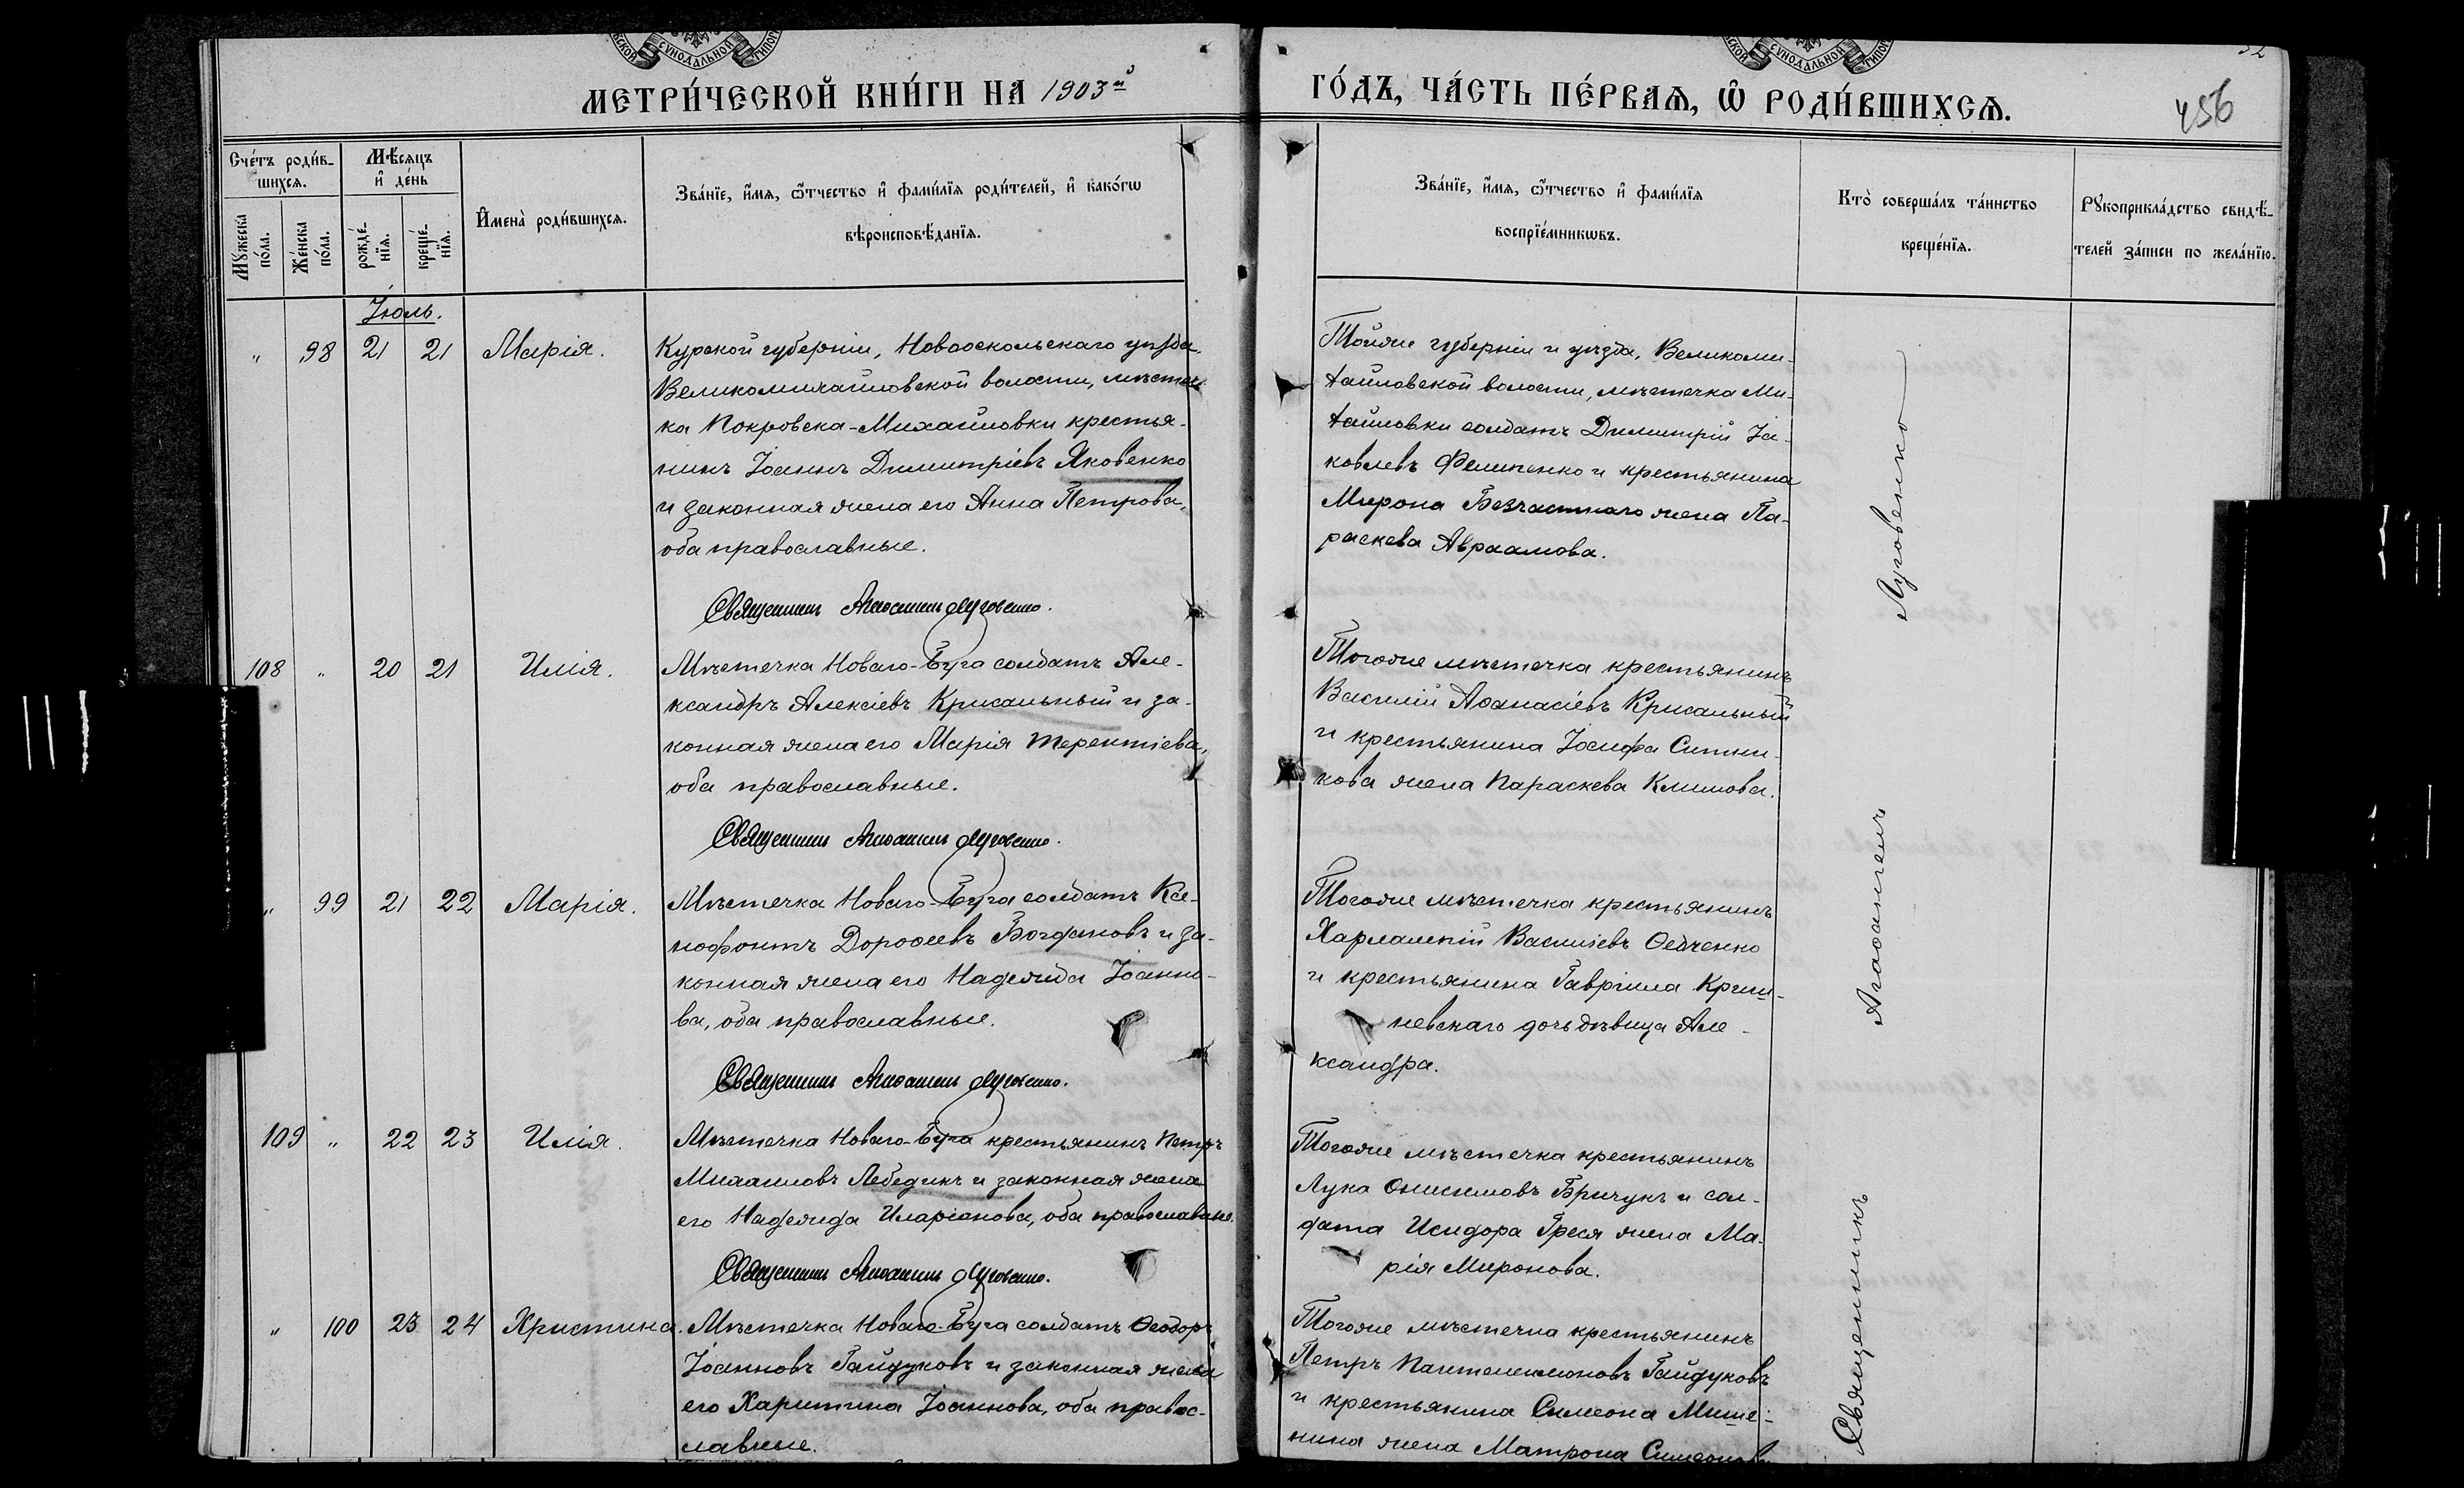 СУНОДАЛЬНОЙ
СУНОДАЛЬНОЙ
МЕТРИ́ЧЕСКОЙ КНИ́ГИ НА 1903й
ГО́ДЪ, ЧА́СТЬ ПЕ́РВАЯ, Ѡ҆ РОДИ́ВШИХСЯ.
456
Сче́тъ роди́в-
шихся.
Мѣ́сяцъ
и҆ де́нь
Мꙋ́жеска
по́ла.
Же́нска
по́ла.
рожде́-
нїя.
креще́-
нїя.
И҆мена̀ роди́вшихся.
Зва́нїе, и҆́мя, ѻ҆́тчество и҆ фами́лїя роди́телей, и҆ како́гѡ
вѣроисповѣ́данїя.
Зва́нїе, и҆́мя, ѻ҆́тчество и҆ фами́лїя
воспрїе́мникѡвъ.
Кто̀ соверша́лъ та́инство
креще́нїя.
Рꙋкоприкла́дство свидѣ́-
телей за́писи по жела́нїю.
Іюль.
" 98 21 21 Марія.
Курской губерніи, Новооскольскаго уѣзда,
Великомихайловской волости, мѣстеч-
ка Покровска-Михайловки крестья-
нинъ Іоаннъ Димитріевъ Яковенко
и законная жена его Анна Петрова,
оба православные.
Священникъ Агаѳангелъ Луговенко.
Тойже губерніи и уѣзда, Великоми-
хайловской волости, мѣстечка Ми-
хайловки солдатъ Димитрій Іа-
ковлевъ Филипенко и крестьянина
Мирона Безчастнаго жена Па-
раскева Авраамова.
108 " 20 21 Илія.
Мѣстечка Новаго-Буга солдатъ Але-
ксандръ Алексіевъ Крисальный и за-
конная жена его Марія Терентіева,
оба православные.
Священникъ Агаѳангелъ Луговенко.
Тогоже мѣстечка крестьянинъ
Василій Аѳанасіевъ Крисальный
и крестьянина Іосифа Ситни-
кова жена Параскева Климова.
" 99 21 22 Марія.
Мѣстечка Новаго-Буга солдатъ Ксе-
нофонтъ Дороѳеевъ Богдановъ и за-
конная жена его Надежда Іоанно-
ва, оба православные.
Священникъ Агаѳангелъ Луговенко.
Тогоже мѣстечка крестьянинъ
Харлампій Василіевъ Ѳедченко
и крестьянина Гавріила Криш-
невскаго дочь дѣвица Але-
ксандра.
109 " 22 23 Илія.
Мѣстечка Новаго-Буга крестьянинъ Петръ
Михаиловъ Лебединъ и законная жена
его Надежда Иларіонова, оба православные.
Священникъ Агаѳангелъ Луговенко.
Тогоже мѣстечка крестьянинъ
Лука Онисимовъ Бричукъ и сол-
дата Исидора Греся жена Ма-
рія Миронова.
" 100 23 24 Христина.
Мѣстечка Новаго-Буга солдатъ Ѳеодоръ
Іоанновъ Гайдуковъ и законная жена
его Харитина Іоаннова, оба правос-
лавные.
Тогоже мѣстечка крестьянинъ
Петръ Пантелеимоновъ Гайдуковъ
и крестьянина Симеона Мише-
нина жена Матрона Симеонова
Священникъ Агаѳангелъ Луговенко